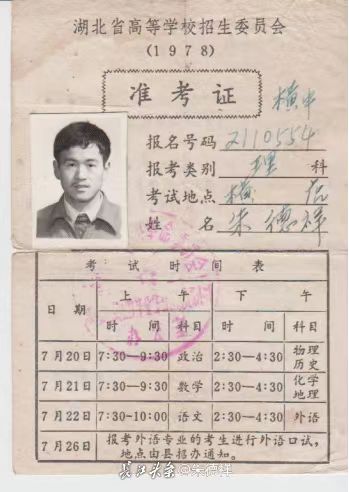 湖北省高等学校招生委员会
(1978)
准考证
横中
报名号码 2110554
报考类别 理 科
考试地点 横
姓 名 朱德祥
考试时间表
日期 上午 下午
时间 科目 时间 科目
7月20日 7:30—9:30 政治 2:30—4:30 物理 历史
7月21日 7:30—9:30 数学 2:30—4:30 化学 地理
7月22日 7:30—10:00 语文 2:30—4:30 外语
7月26日 报考外语专业的考生进行外语口试，
地点由县招办通知。
长江头条@朱德祥